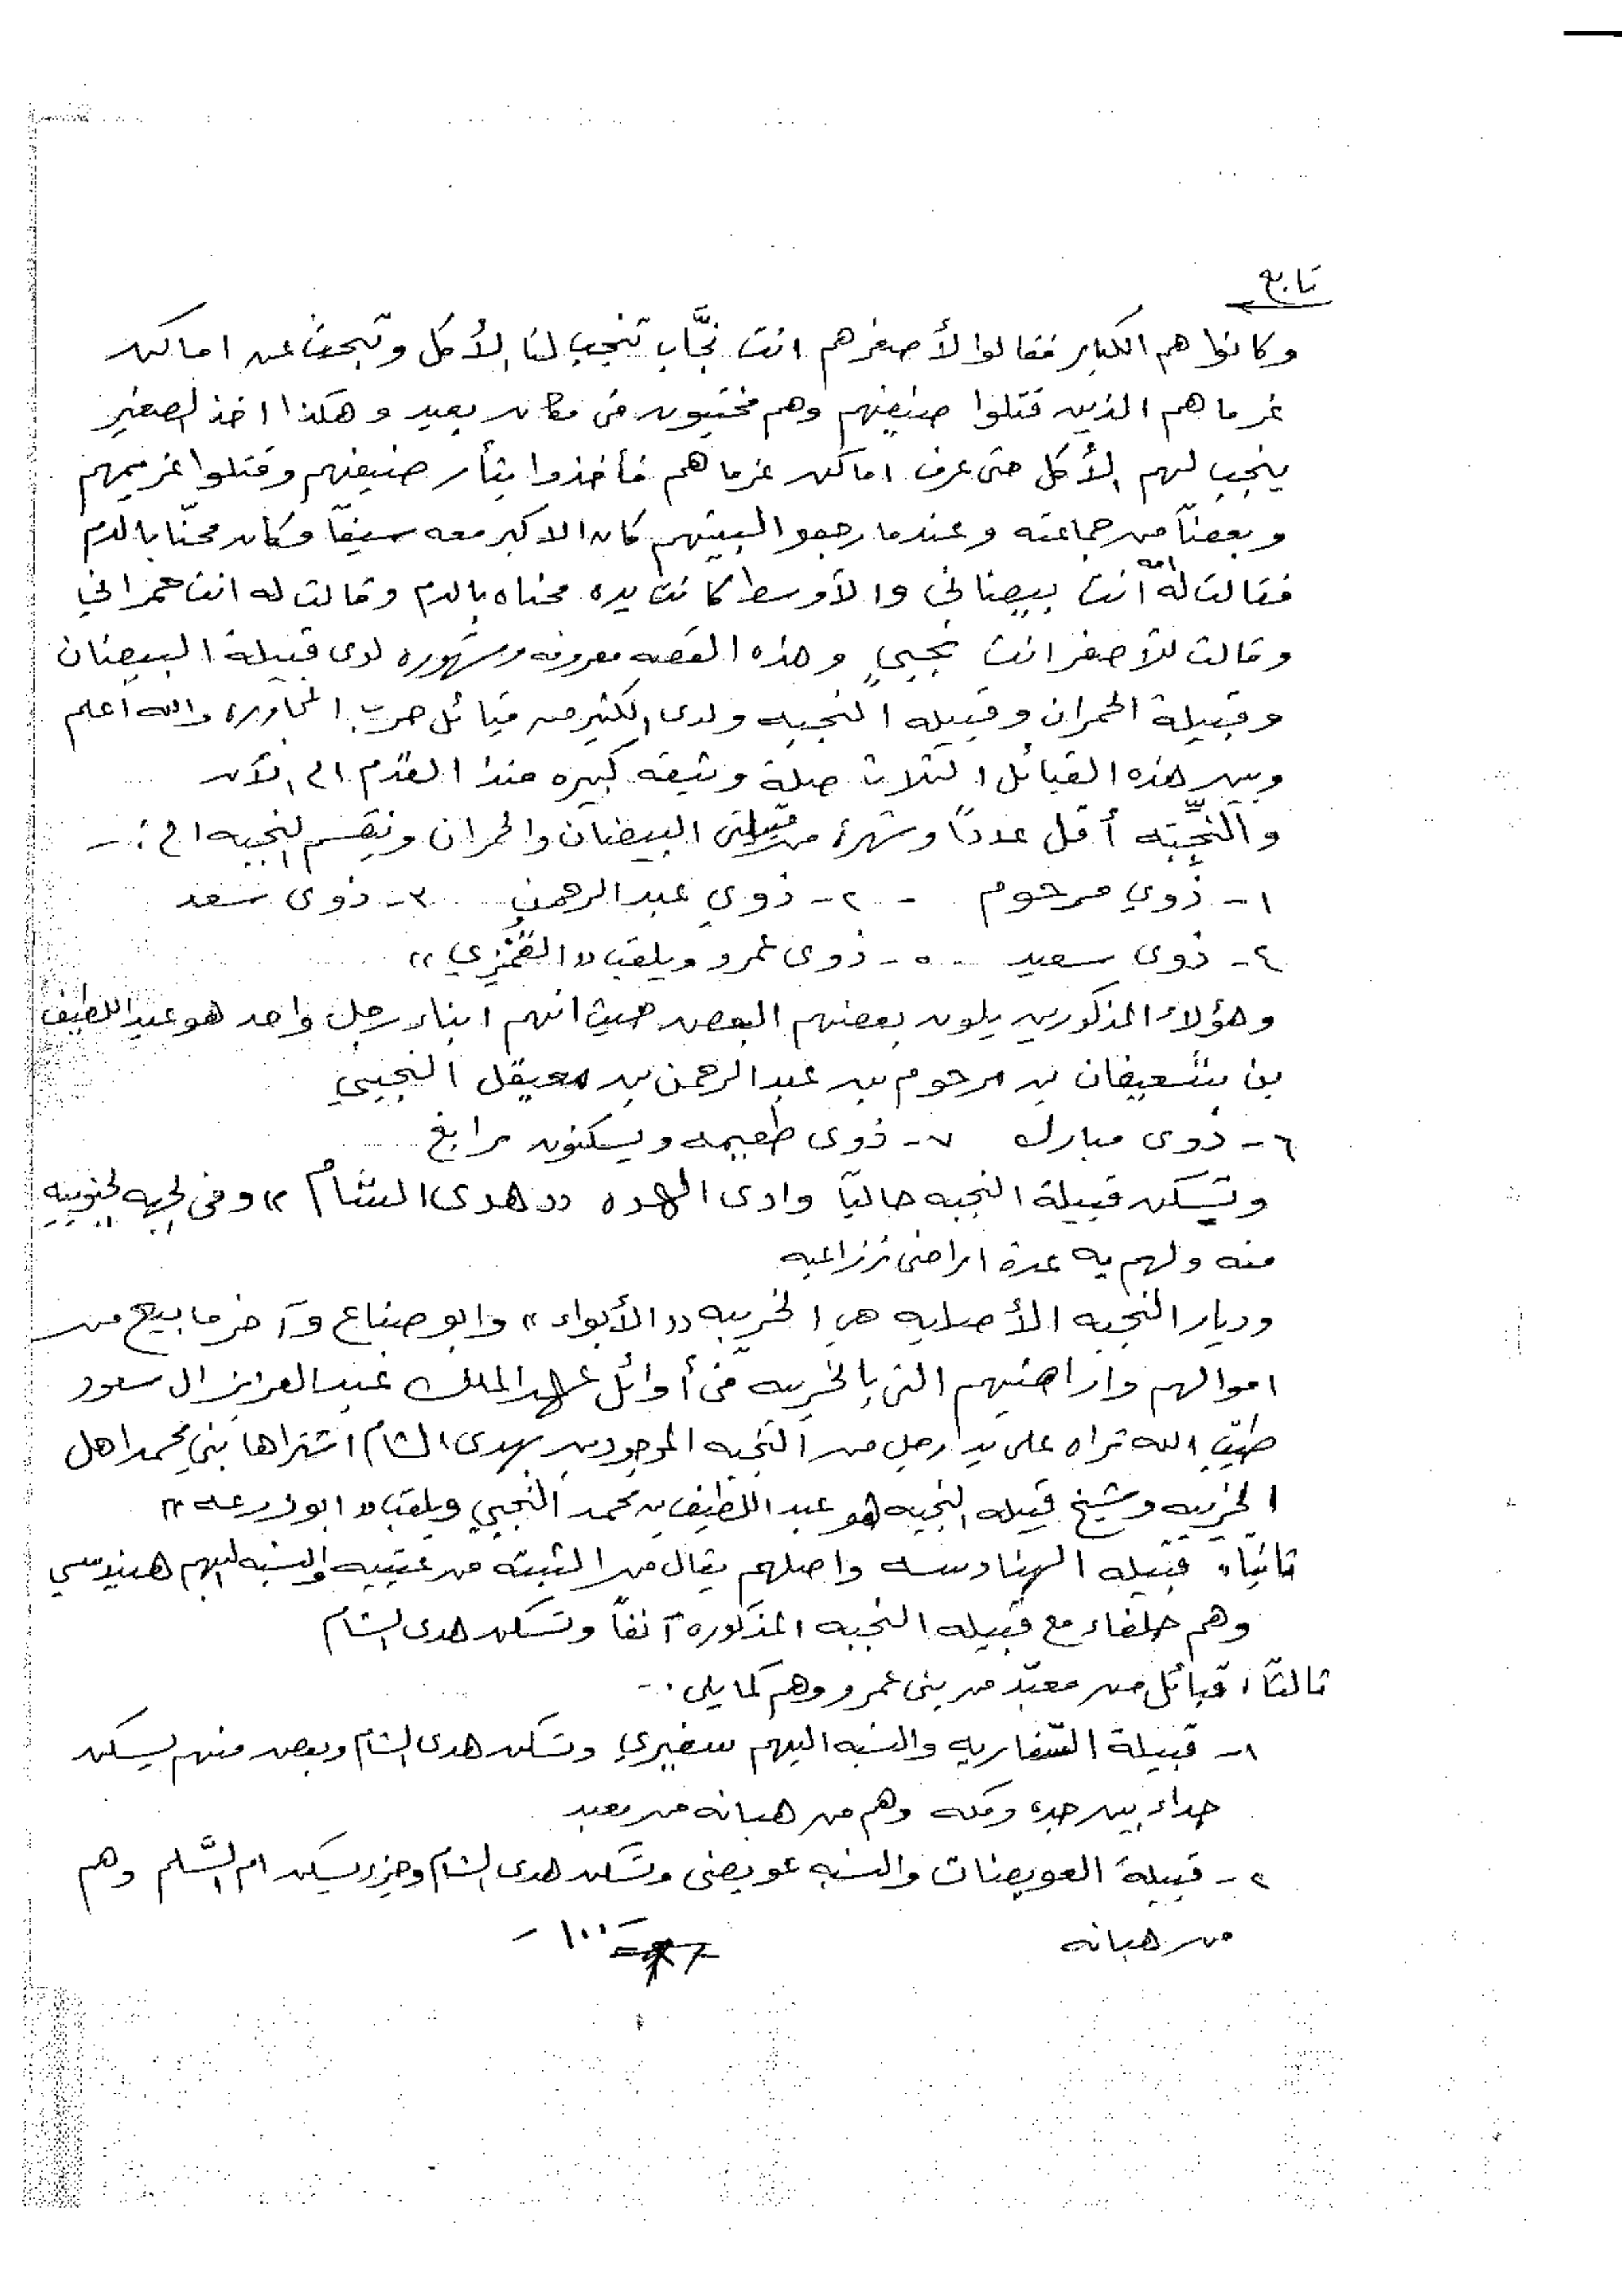 تابع
وكانوا هم الكبار فقالوا لأصغرهم انت نجَّاب تنجب لنا الأكل وتبحث عن اماكن
غرماهم الذين قتلوا ضيفهم وهم مختبون في مكان بعيد وهكذا اخذ الصغير
ينجب لهم الأكل حتى عرف اماكن غرماهم فأخذوا بثأر ضيفهم وقتلوا غريمهم
وبعضاً من جماعته وعندما رجعو البيتهم كان الاكبر معه سيفاً وكان محنّا بالدم
فقالت له امه انت بيضاني والأوسط كانت يده محناه بالدم وقالت له انت حمراني
وقالت للأصغر انت نجبي وهذه القصه معروفه ومشهوره لدى قبيلة البيضان
وقبيلة الحمران وقبيله النجبه ولدى الكثير من قبائل حرب المجاوره والله اعلم
وبين هذه القبائل الثلاث صلة وثيقه كبيره منذ القدم الى الآن
والنجبه أقل عدداً وشهرة من قبيلتي البيضان والحمران وتنقسم النجبه الى :-
١- ذوي مرحوم - ٢- ذوي عبدالرحمن ٣- ذوى سعد
٤- ذوى سعيد - ٥- ذوى عمرو ويلقب «القمزي»
وهؤلاء المذكورين يلون بعضهم البعض حيث انهم ابناء رجل واحد هو عبداللطيف
بن شعيفان بن مرحوم بن عبدالرحمن بن معيقل النجبي
٦- ذوى مبارك ٧- ذوى طعيمه ويسكنون رابغ
وتسكن قبيلة النجبه حالياً وادى الهده «هدى الشام» وفى الجهه الجنوبيه
منه ولهم به عدة اراضى زراعيه
وديار النجبه الأصليه هي الخريبه «الأبواء» وابو ضباع وآخر ما بيع من
اموالهم واراضيهم التى بالخريبه فى أوائل عهد الملك عبدالعزيز ال سعود
طيّب الله ثراه على يد رجل من النجبه الموجودين بهدى الشام اشتراها بني محمد اهل
الخريبه وشيخ قبيله النجبه هو عبداللطيف بن محمد النجبي ويلقب «ابوزرعه»
ثانياً، قبيله الهنادسه واصلهم يقال من الثبته من عتيبه والنسبه اليهم هنيدسي
وهم حلفاء مع قبيله النجبه المذكوره آنفاً وتسكن هدى الشام
ثالثاً، قبائل من معبّد من بنى عمرو وهم كما يلى :-
١- قبيلة السّفاريه والنسبه اليهم سفيري وتسكن هدى الشام وبعض منهم يسكن
حداء بين جده ومكه وهم من هبانه من معبد
٢- قبيلة العويضات والنسبه عويضى وتسكن هدى الشام وجزء يسكن ام السَّلم وهم
من هبانه
- ١٠٠ -